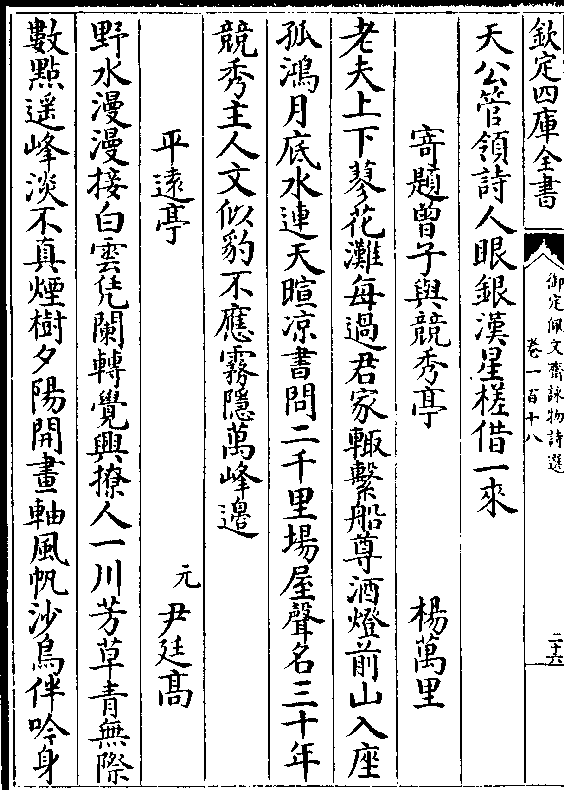 欽定四庫全書
御定佩文齋詠物詩選
卷一百十八
二十六
天公管領詩人眼銀漢星槎借一來
寄題曾子與競秀亭 楊萬里
老夫上下蓼花灘每過君家輙繫船尊酒燈前山入座
孤鴻月底水連天暄凉書問二千里場屋聲名三十年
競秀主人文似豹不應霧隱萬峰邊
平遠亭 元 尹廷高
野水漫漫接白雲凭闌轉覺興撩人一川芳草青無際
數點遥峰淡不真煙樹夕陽開畫軸風帆沙鳥伴吟身